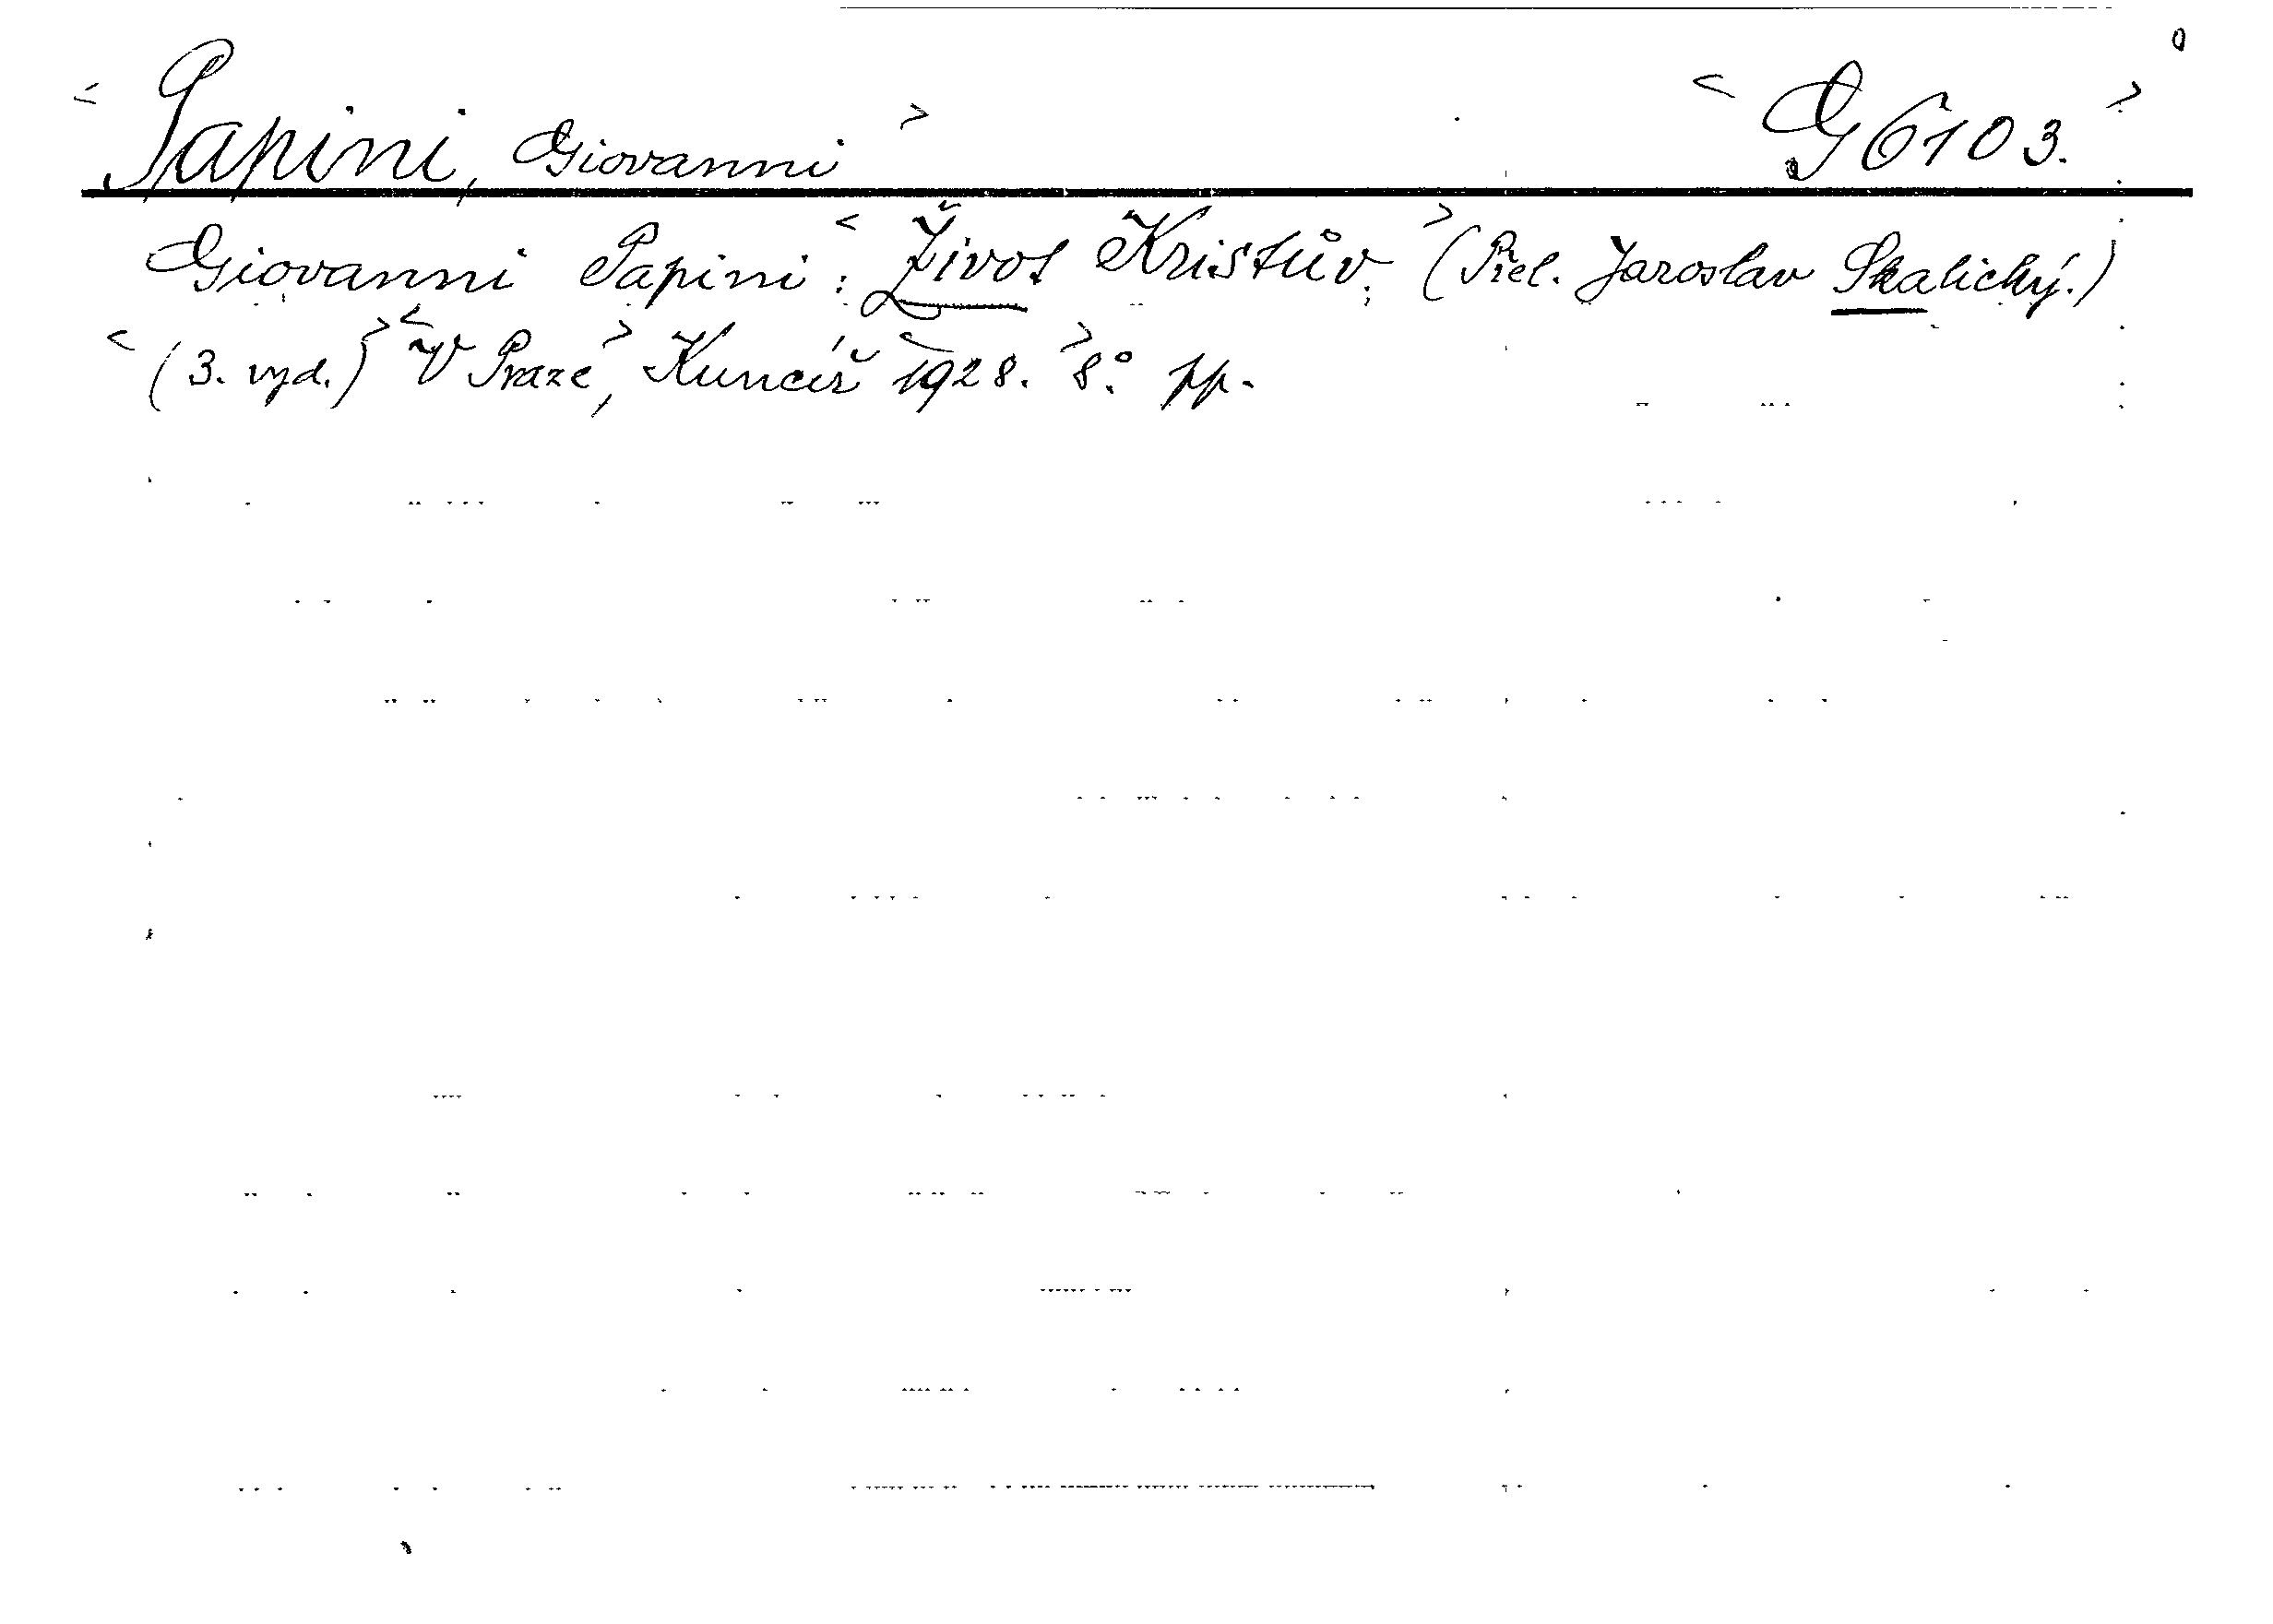 < Papini, Giovanni > < G 6103. >
Giovanni Papini: < Život Kristův. > (Přel. Jaroslav Skalický.)
< (3. vyd.) > < V Praze >, Kuncíř < 1928. > 8°. pp.